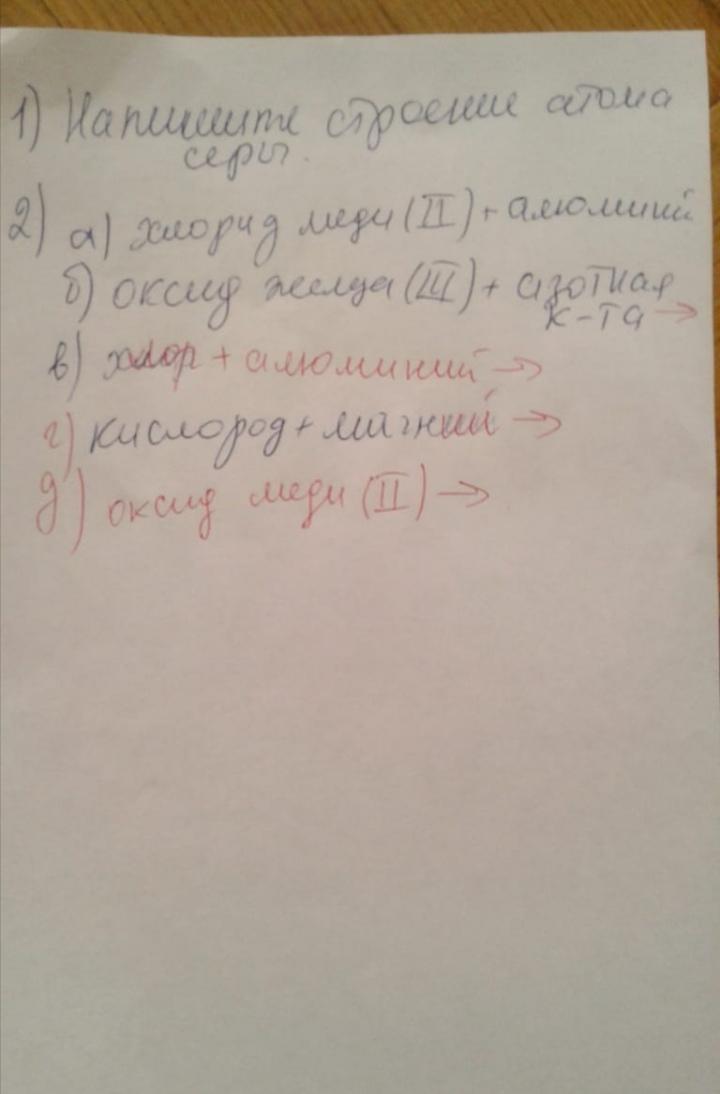 1) Напишите строение атома
серы.
2) а) хлорид меди (II) + алюминий
б) оксид железа (III) + азотная
к-та →
в) хлор + алюминий →
г) кислород + магний →
д) оксид меди (II) →